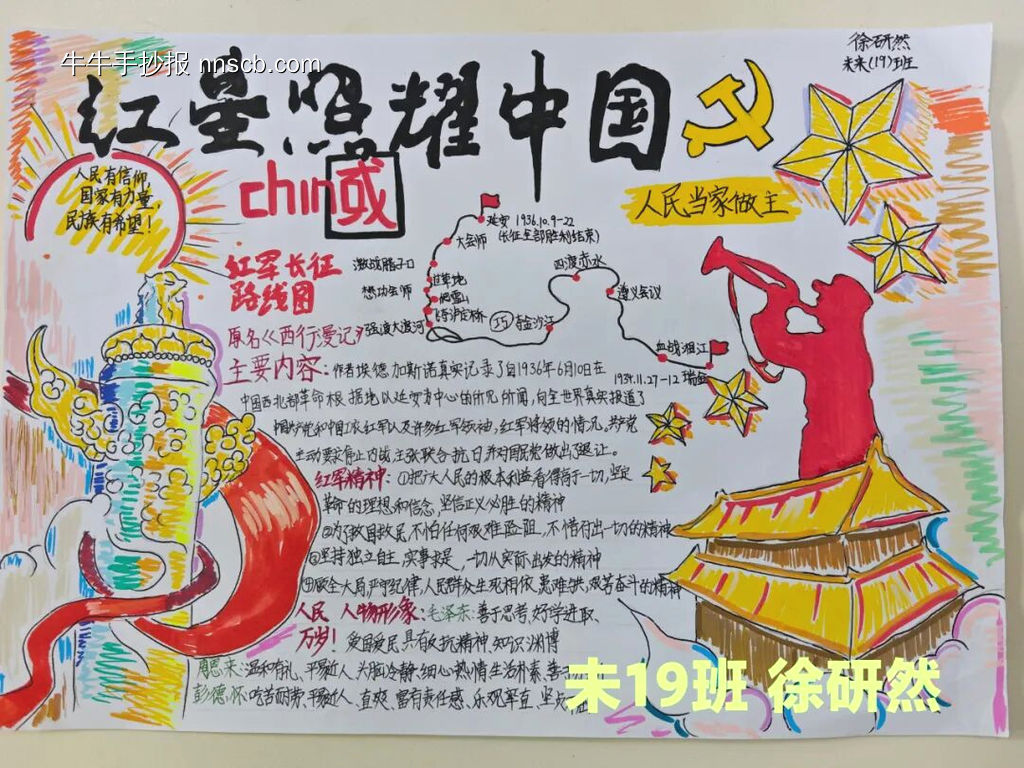 牛牛手抄报 nnscb.com
徐研然
未来(19)班
红星照耀中国
人民有信仰,
国家有力量,
民族有希望!
chin或
人民当家做主
红军长征
路线图
延安 1936.10.9-22
大会师 (长征全部胜利结束)
激战腊子口
懋功会师
过草地
爬雪山
飞夺泸定桥
强渡大渡河
巧夺金沙江
四渡赤水
遵义会议
血战湘江
1934.11.27-12 瑞金
原名《西行漫记》
主要内容:作者埃德加斯诺真实记录了自1936年6月10日在
中国西北部革命根据地以延安为中心的所见所闻,向全世界真实报道了
中国共产党和中国工农红军以及许多红军领袖,红军将领的情况,共产党
主动要求停止内战主张联合抗日并对国民党做出了退让。
红军精神:①把广大人民的根本利益看得高于一切,坚定
革命的理想和信念,坚信正义必胜的精神
②为了救国救民,不怕任何艰难险阻,不惜付出一切的精神
③坚持独立自主,实事求是,一切从实际出发的精神
④顾全大局,严守纪律,人民群众生死相依,患难与共,艰苦奋斗的精神
人民
万岁!
人物形象:毛泽东:善于思考,好学进取、
爱国爱民具有反抗精神,知识渊博
周恩来:温和有礼,平易近人,头脑冷静,细心热情生活朴素,善
彭德怀:吃苦耐劳,平易近人、直爽、富有责任感、乐观率直,坚
未19班 徐研然